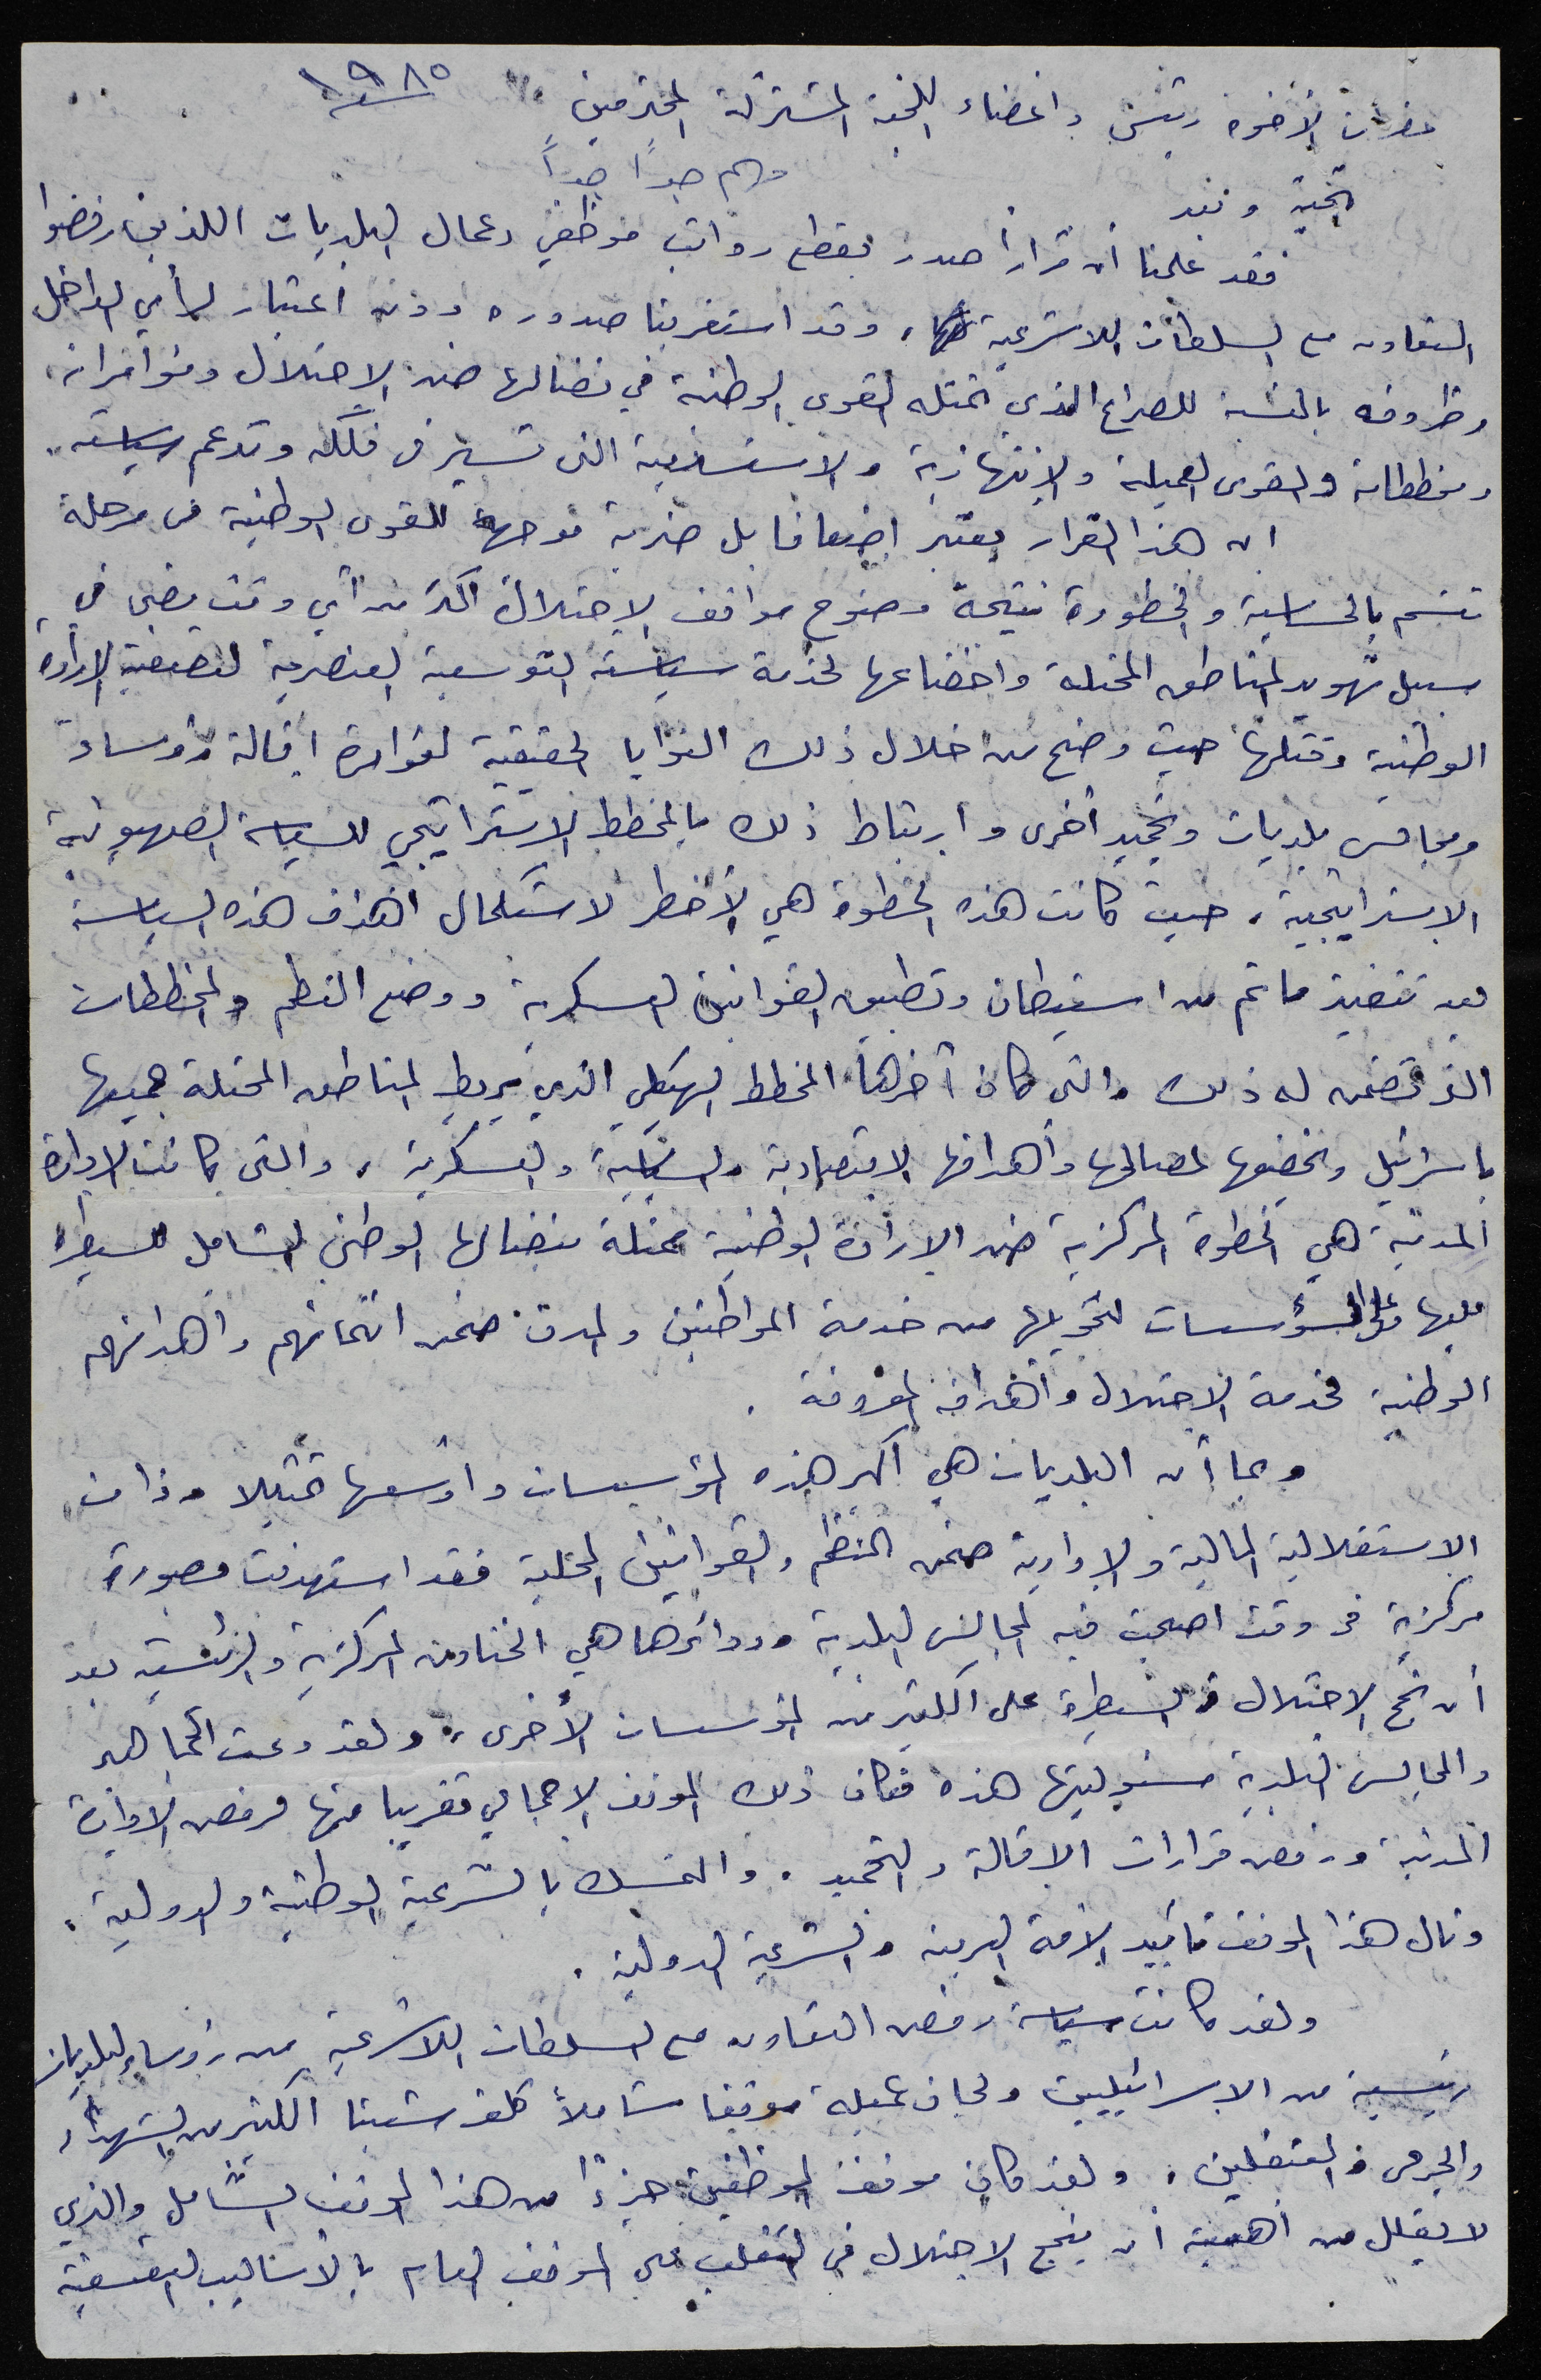 ١٩٨٥
حضرات الأخوة رئيس وأعضاء اللجنة المشتركة المحترمين
مهم جداً جداً
تحية وبعد
فقد علمنا أن قراراً صدر بقطع رواتب موظفي وعمال البلديات اللذين رفضوا
التعاون مع السلطات اللاشرعية، وقد استغربنا صدوره دون اعتبار لرأي الداخل
وظروفه بالنسبة للصراع الذي تمثله القوى الوطنية في نضالها ضد الاحتلال ومؤامراته
ومخططاته والقوى العميلة والانتهازية والاستسلامية التي تسير في فلكه وتدعم سياسته.
ان هذا القرار يعتبر اضعافا بل ضربة موجهة للقوى الوطنية في مرحلة
تتسم بالحساسية والخطورة نتيجة وضوح مواقف الاحتلال اكثر من أي وقت مضى في
سبيل تهويد المناطق المحتلة واخضاعها لخدمة سياسته التوسعية العنصرية لتصفية الارادة
الوطنية وقتلها حيث وضح من خلال ذلك النوايا الحقيقية لمؤامرة اقالة رؤساء
ومجالس بلديات وتجميد أخرى وارتباط ذلك بالمخطط الاستراتيجي للسياسة الصهيونية
الاستراتيجية، حيث كانت هذه الخطوة هي الأخطر لاستكمال اهداف هذه السياسة
بعد تنفيذ ما تم من استيطان وتطبيق القوانين العسكرية ووضع النظم والمخططات
التي تضمن له ذلك والتي كان آخرها المخطط الهيكلي الذي يربط المناطق المحتلة جميعها
باسرائيل ويخضعها لمصالحها وأهدافها الاقتصادية والسياسية والعسكرية، والتي كانت الادارة
المدنية هي الخطوة المركزية ضد الارادة الوطنية ممثلة بنضالها الوطني الشامل للسيطرة
عليها وعلى المؤسسات لتحويلها من خدمة المواطنين والمدن ضمن انتمائهم وأهدافهم
الوطنية لخدمة الاحتلال وأهدافه المعروفة.
وبما أن البلديات هي أكبر هذه المؤسسات وأوسعها تمثيلا وذات
الاستقلالية المالية والادارية ضمن النظم والقوانين المحلية فقد استهدفت بصورة
مركزية في وقت اصبحت فيه المجالس البلدية ودوائرها هي الخنادق المركزية والرئيسية بعد
أن نجح الاحتلال في السيطرة على الكثير من المؤسسات الأخرى، ولقد وعت الجماهير
والمجالس البلدية مسؤوليتها هذه فكان ذلك الموقف الاجماعي تقريبا منها برفض الادارة
المدنية ورفض قرارات الاقالة والتجميد. والتمسك بالشرعية الوطنية والدولية.
ونال هذا الموقف تأييد الأمة العربية والشرعية الدولية.
ولقد كانت سياسة رفض التعاون مع السلطات اللاشرعية من رؤساء البلديات
رئيسية من الاسرائيليين ولجان عميلة موقفا شاملاً كلف شعبنا الكثير من الشهداء
والجرحى والمعتقلين. ولقد كان موقف الموظفين جزءاً من هذا الموقف الشامل والذي
لا يقلل من أهميته أن ينجح الاحتلال في التغلب على الموقف العام بالأساليب التعسفية